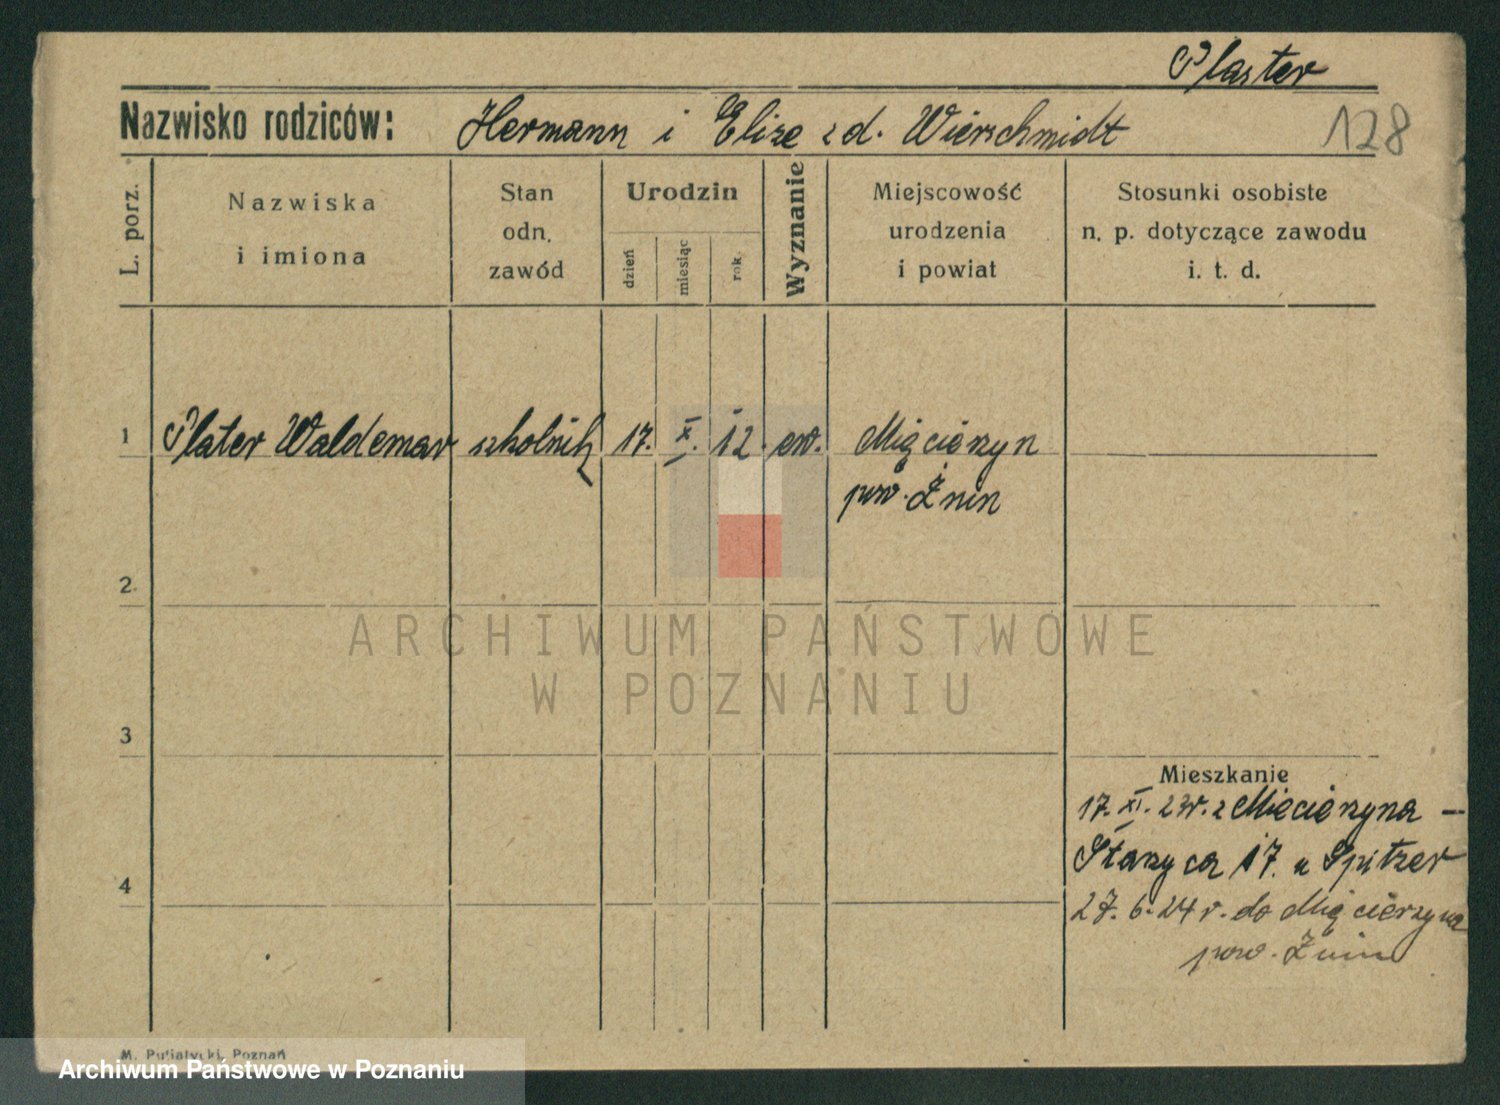 Plaster
Nazwisko rodziców: Hermann i Elise zd. Wierschmidt 128
L. porz.
Nazwiska
i imiona
Stan
odn.
zawód
Urodzin
dzień
miesiąc
rok.
Wyznanie
Miejscowość
urodzenia
i powiat
Stosunki osobiste
n. p. dotyczące zawodu
i. t. d.
1 Plater Waldemar szkolnik 17. X. 12. ew. Mięcierzyn
pow. Żnin
2.
ARCHIWUM PAŃSTWOWE
W POZNANIU
3
Mieszkanie
17. XI. 23r. z Miecierzyna —
17. u Spitzer
4
27. 6. 24 r. do Mięcierzyna
pow. Żnin
M. Putiatycki, Poznań
Archiwum Państwowe w Poznaniu